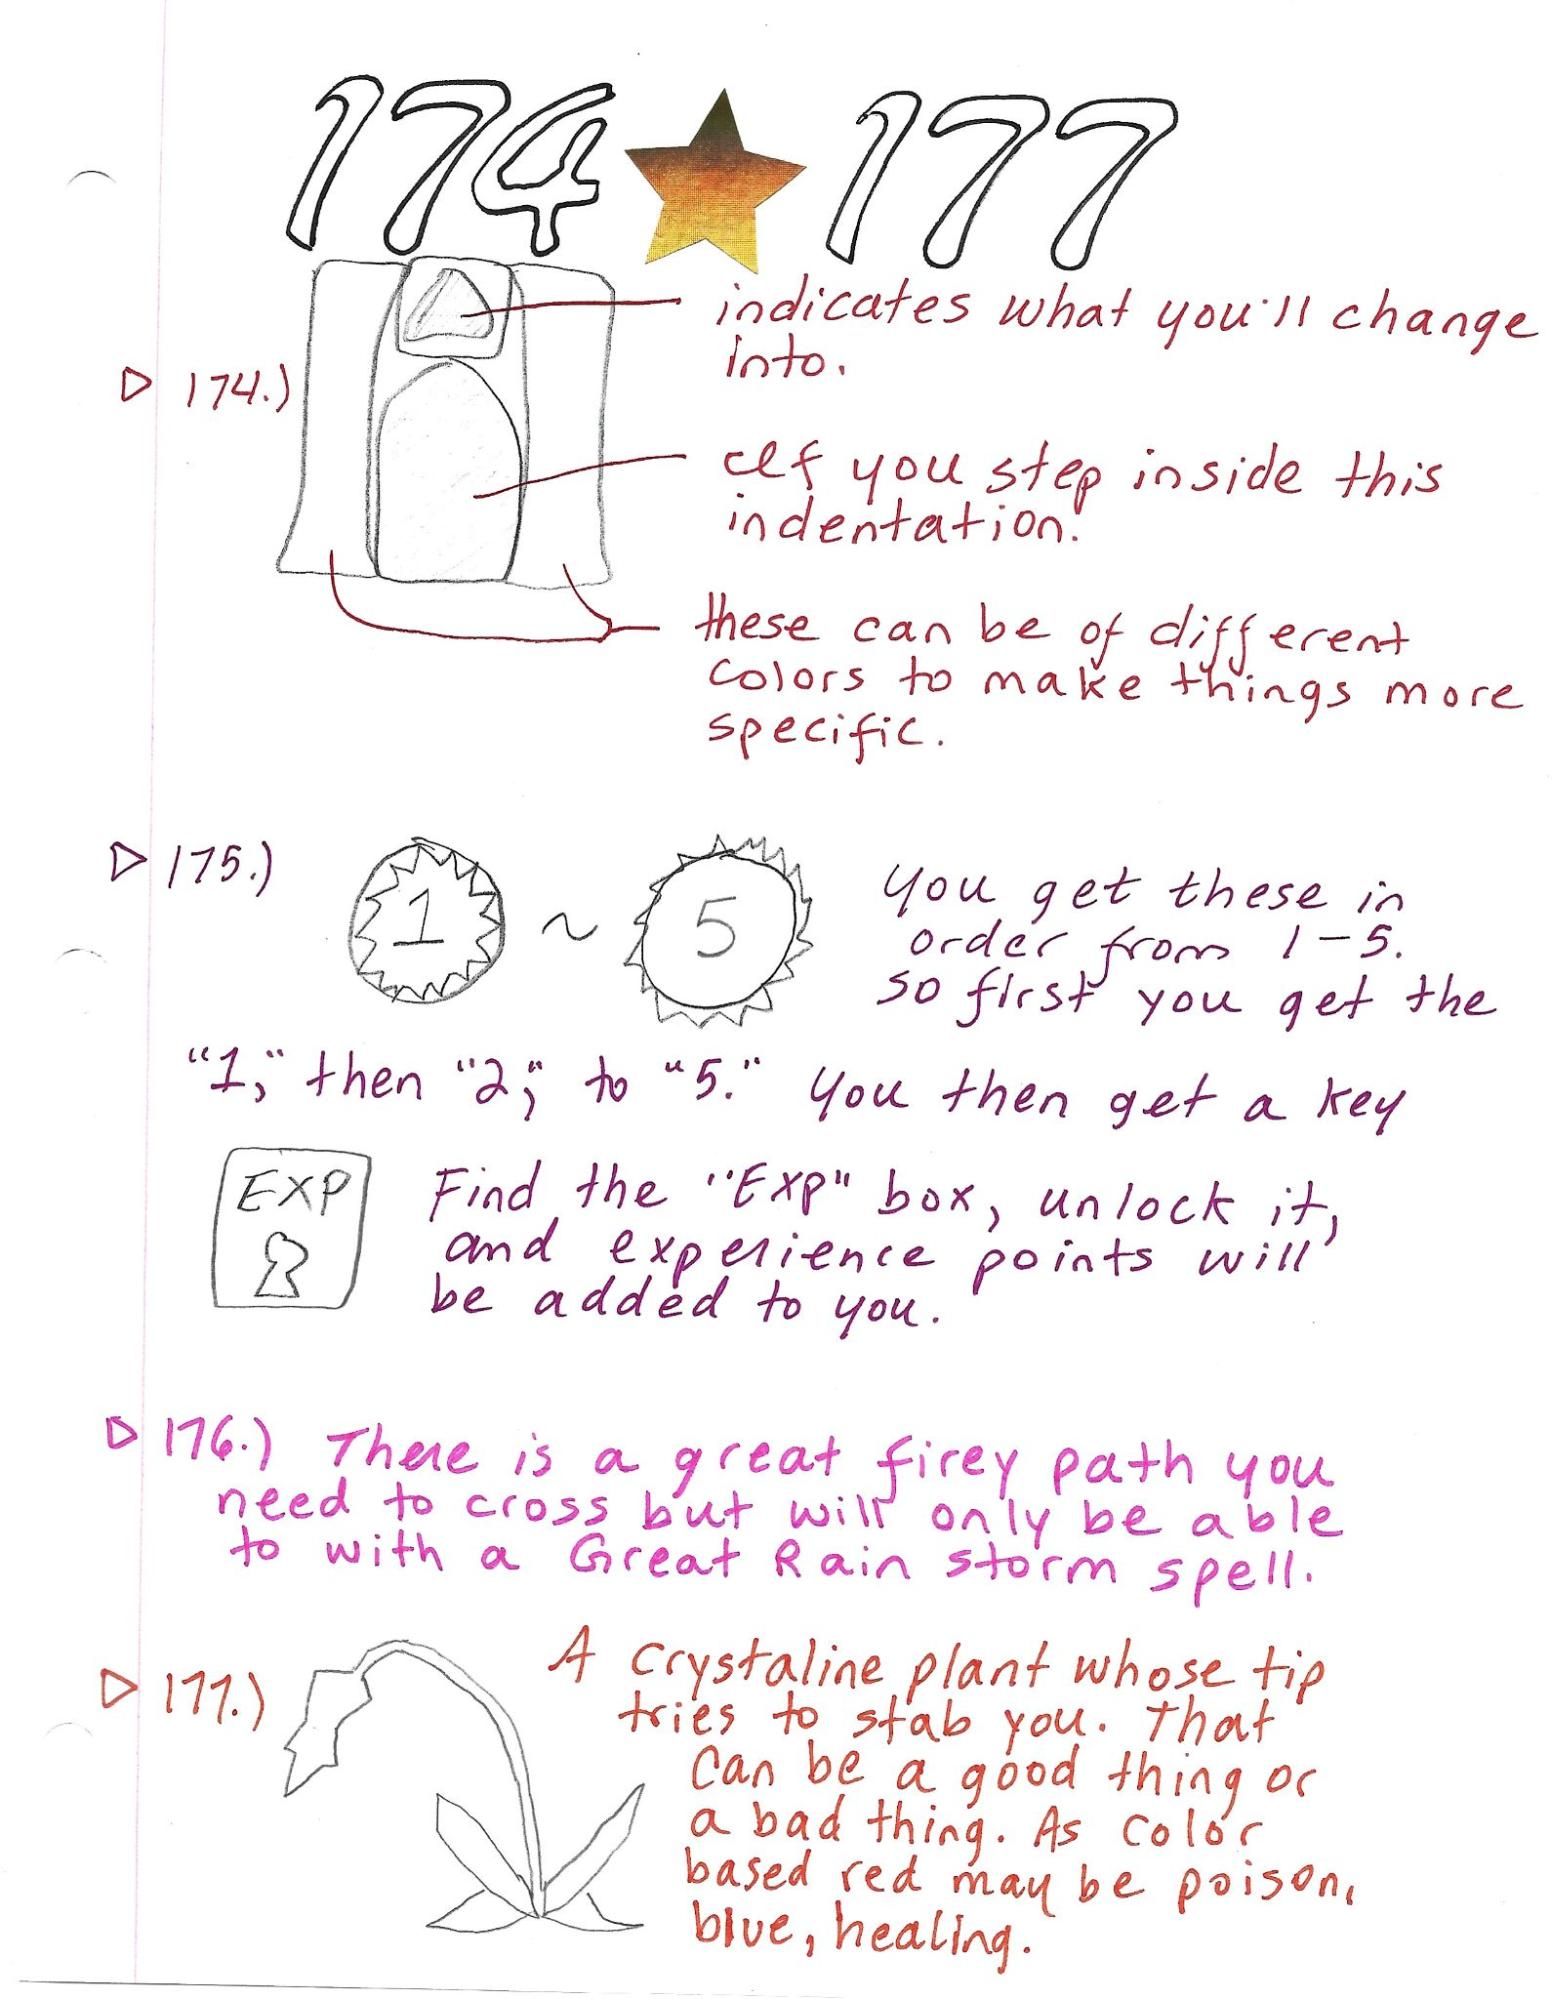 174 177
indicates what you'll change
into.
174.)
If you step inside this
indentation.
these can be of different
colors to make things more
specific.
175.)
1 ~ 5
You get these in
order from 1-5.
So first you get the
"1," then "2," to "5." You then get a key
EXP
Find the "EXP" box, unlock it,
and experience points will
be added to you.
176.) There is a great firey path you
need to cross but will only be able
to with a Great Rain storm spell.
177.)
A crystaline plant whose tip
tries to stab you. That
can be a good thing or
a bad thing. As color
based red may be poison,
blue, healing.